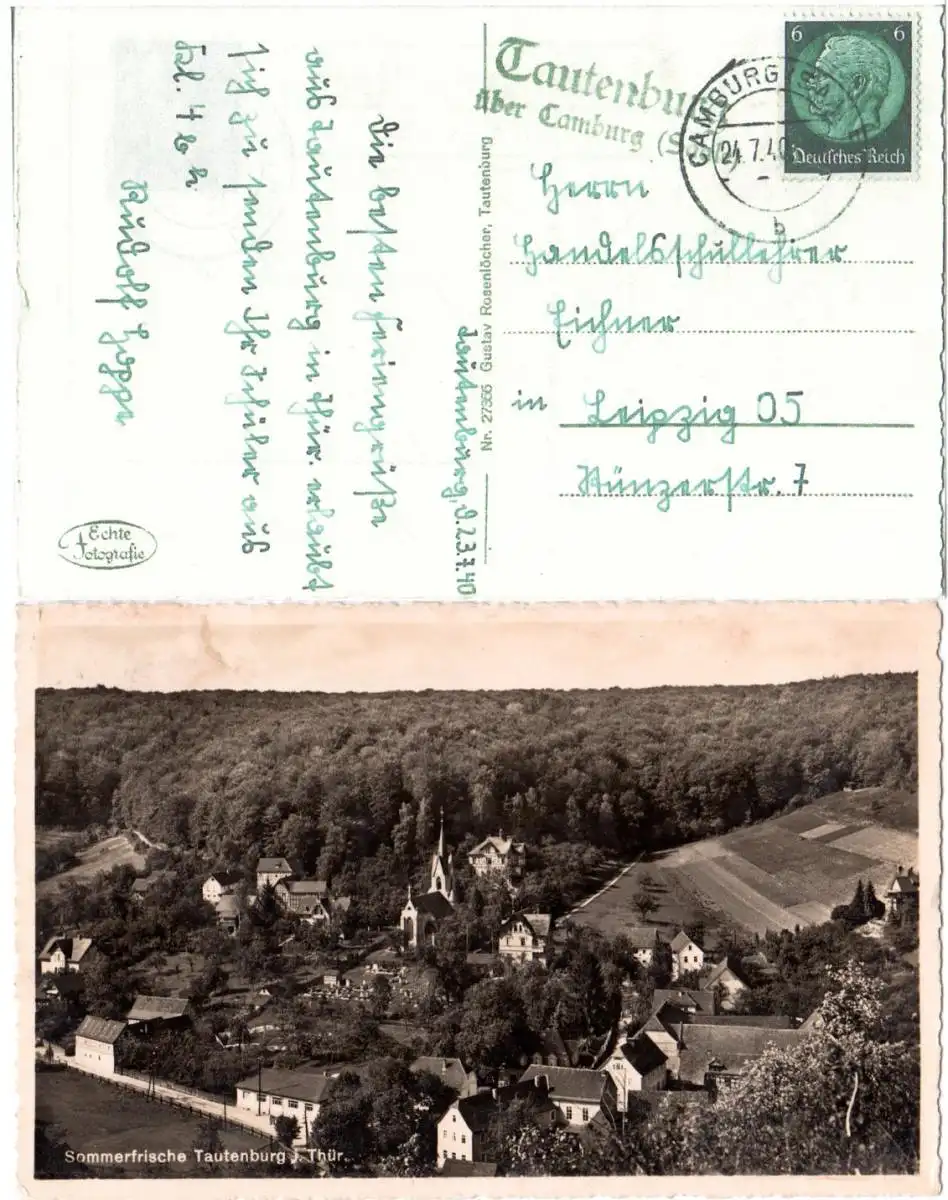 Tautenburg, d. 23.7.40
Die besten Feriengrüße
aus Tautenburg in Thür. erlaubt
sich zu senden Ihr Schüler aus
Kl. 4 b h
Rudolf Hoppe
Echte
Fotografie
Nr. 27366 Gustav Rosenlöcher, Tautenburg
Tautenbu
über Camburg (S
CAMBURG
24.7.40
b
6 6
Deutsches Reich
Herrn
Handelsschullehrer
Eichner
in Leipzig O5
Künzerstr. 7
Sommerfrische Tautenburg i. Thür.